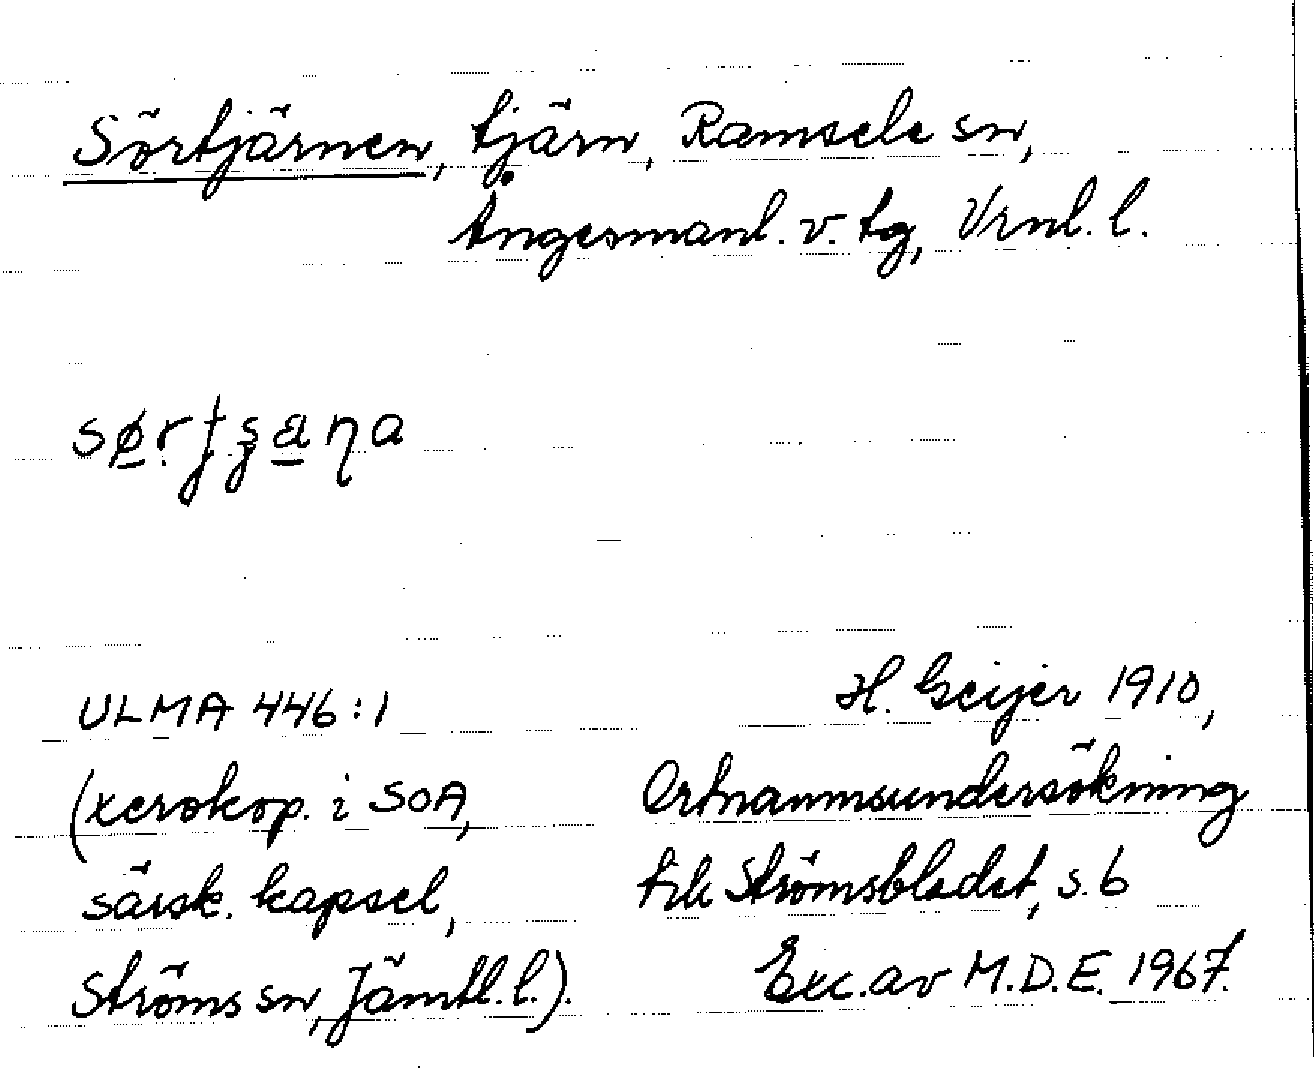 Sörtjärnen, tjärn, Ramsele sn,
Ångermanl. v. tg, Vrnl. l.
ULMA 446:1
(xerokop. i SOA,
särsk. kapsel,
Ströms sn, Jämtl. l.).
H. Geijer 1910,
Ortnamnsundersökning
till Strömsbladet, s. 6
Exc. av M.D.E. 1967.